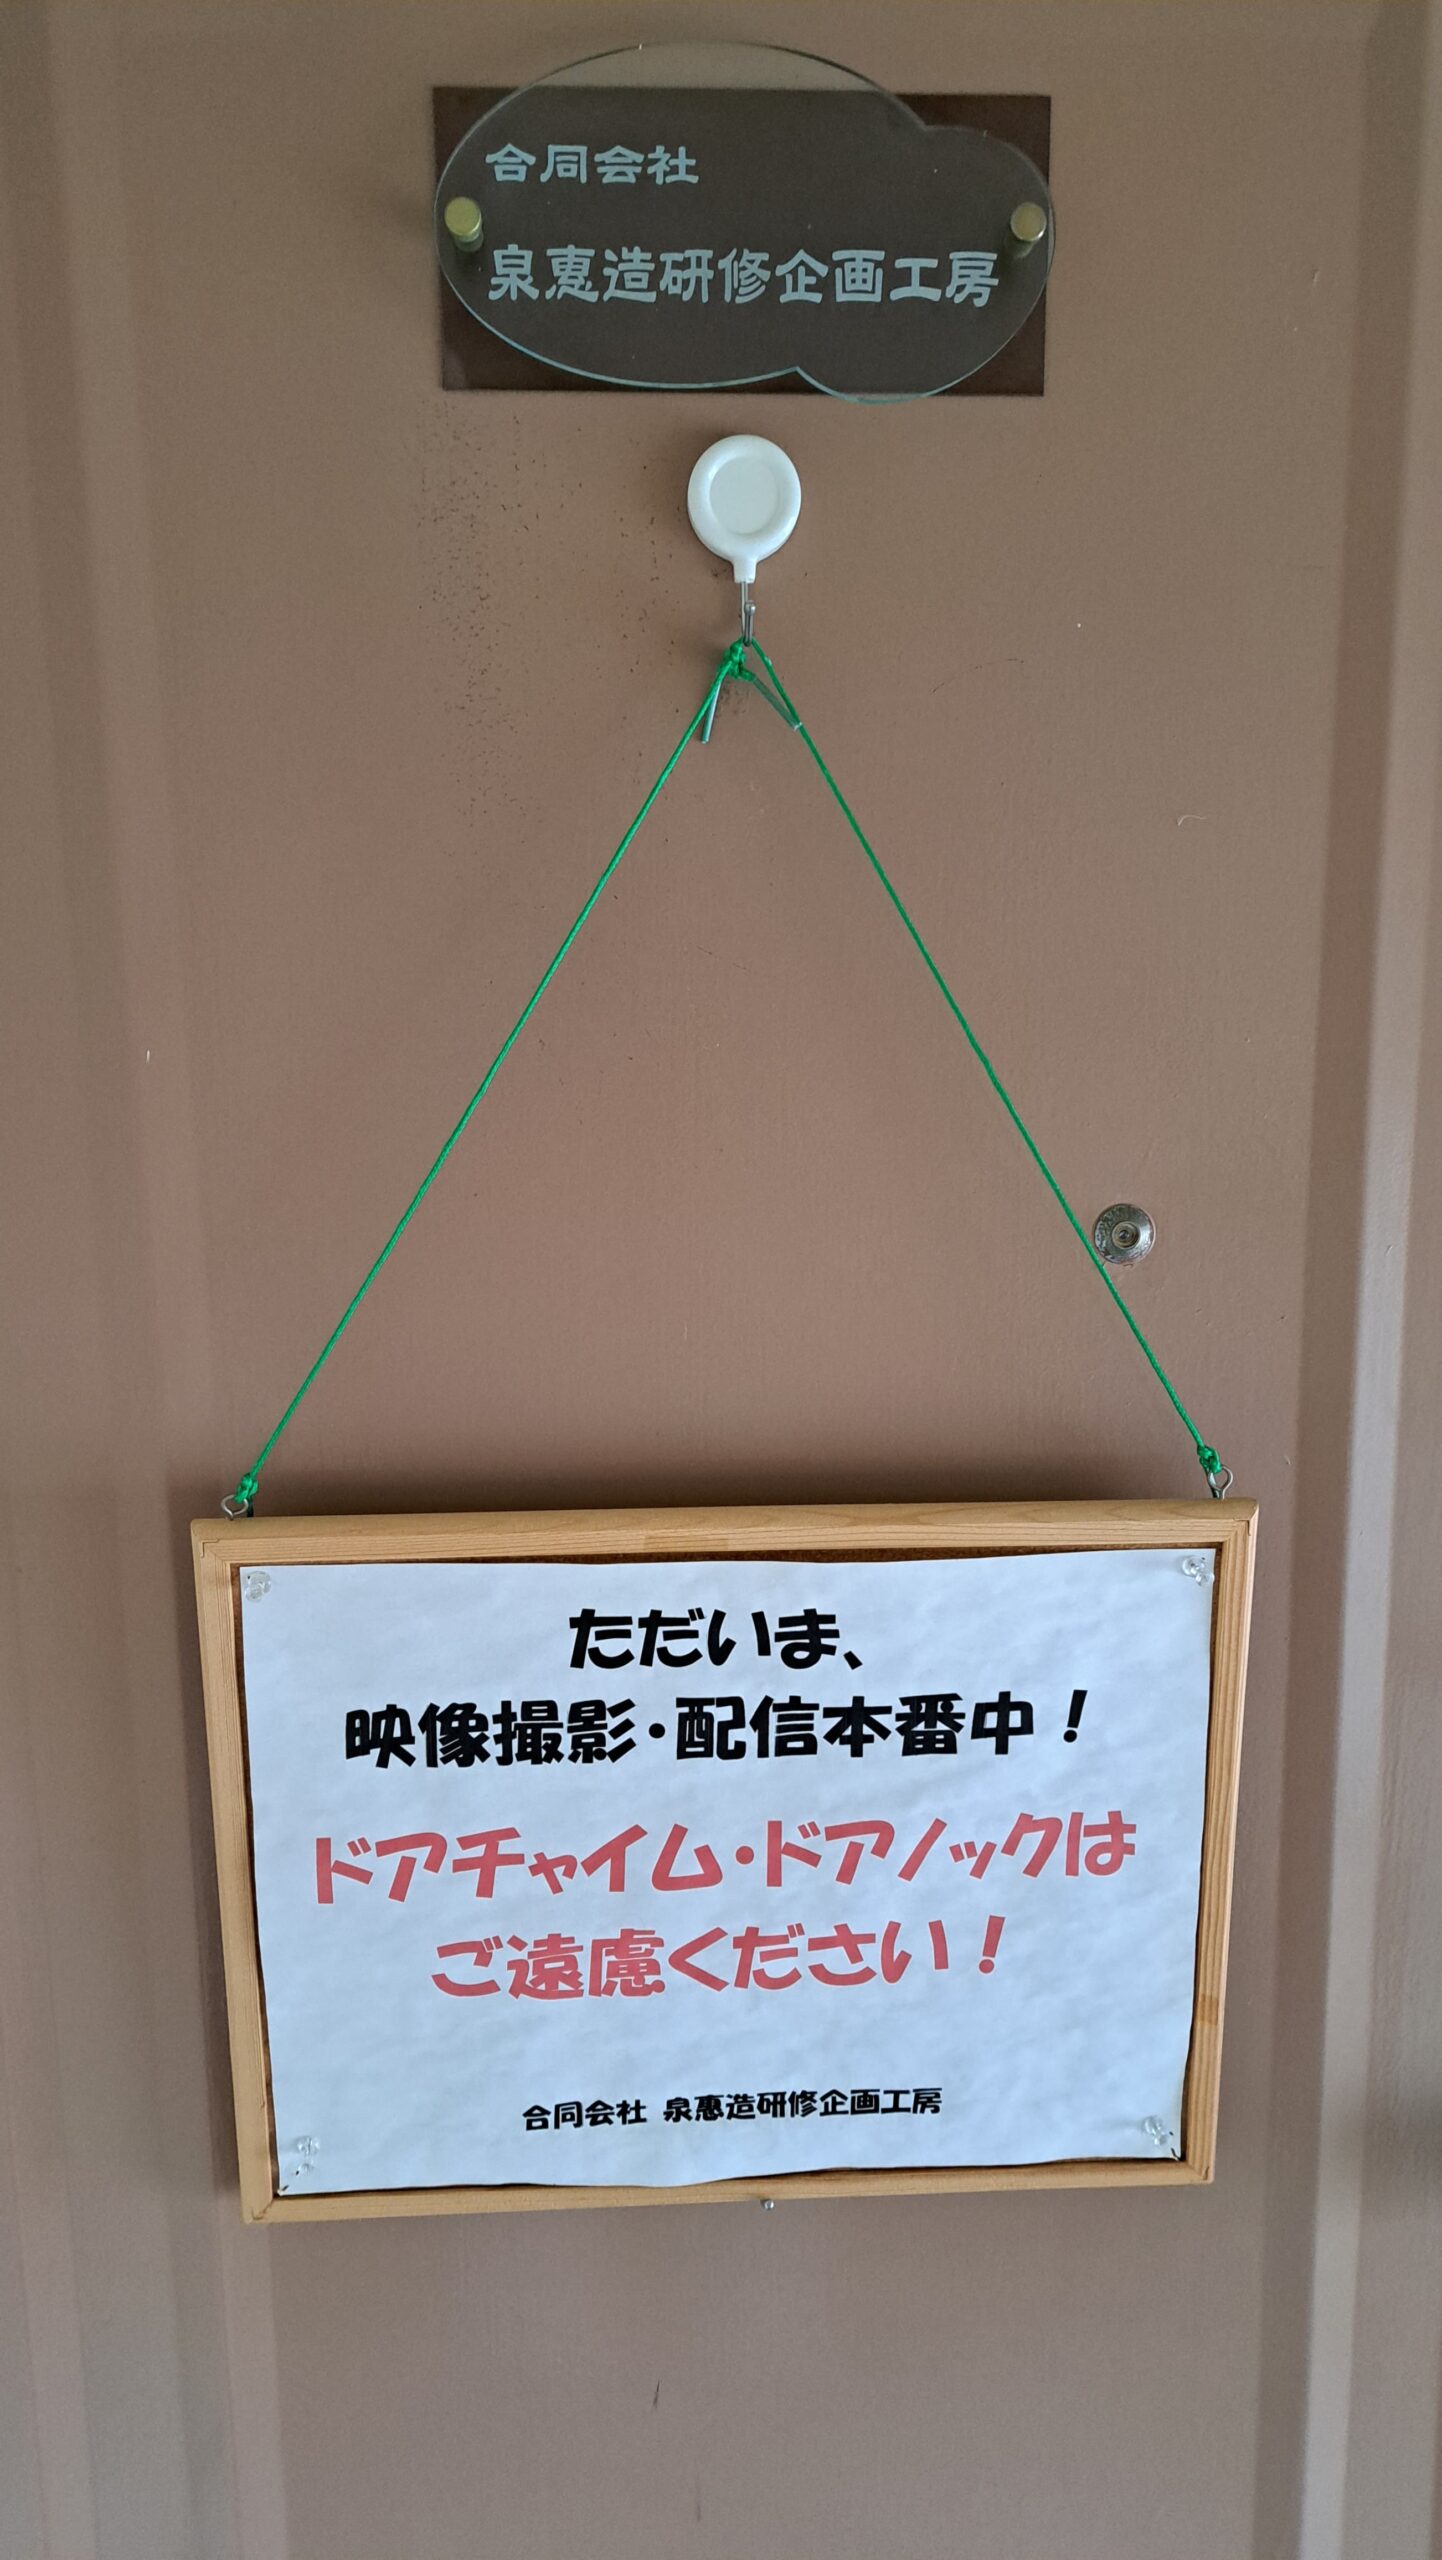 合同会社
泉惠造研修企画工房
ただいま、
映像撮影・配信本番中！
ドアチャイム・ドアノックは
ご遠慮ください！
合同会社 泉惠造研修企画工房